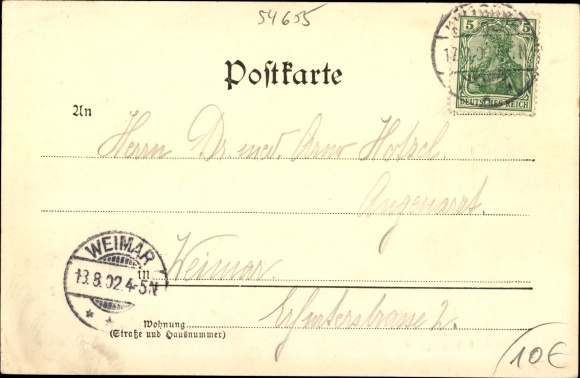 54655
5 5
DEUTSCHES REICH
Postkarte
An
Herrn Dr. med. Arno
Augenarzt.
WEIMAR
13.8.02.4-5N
in Weimar.
Erfurterstrasse 2.
Wohnung
(Straße und Hausnummer)
10€